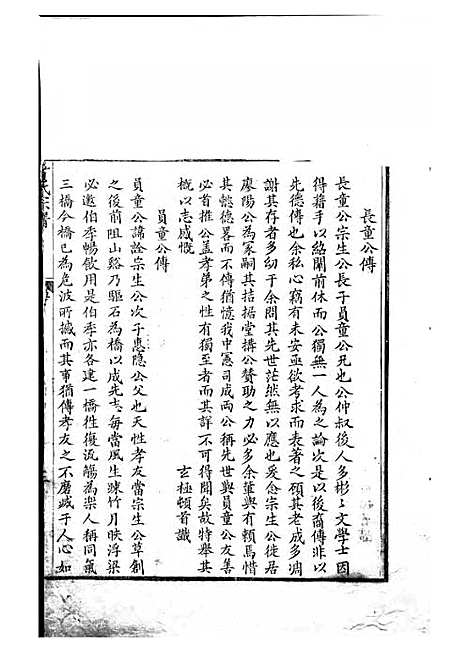 長童公傳
長童公宗生公長子員童公兄也公仲叔後人多彬彬文學士因
得藉手以紹闡前休而公獨無一人為之論次是以後裔傳非以
先德傳也余私心竊有未安亟欲考求而表著之顧其老成多凋
謝其存者多幼于余問其先世茫然無以應也爰念宗生公徙居
廖陽公為冢嗣其拮据堂搆公贊助之力必多余輩與有賴焉惜
其懿德畧而不傳猶憶我中憲司成兩公稱先世與員童公友善
必首推公蓋孝弟之性有獨至者而其詳不可得聞矣故特舉其
概以志感慨
玄極頓首識
員童公傳
員童公諱詮宗生公次子愚隱公父也天性孝友當宗生公草創
之後前阻山谿乃驅石為橋以成先志每當風生竦竹月映浮梁
必邀伯季暢飲用是伯季亦各建一橋往復流觴為樂人稱同氣
三橋今橋已為危波所撼而其事猶傳孝友之不磨蹴于人心如